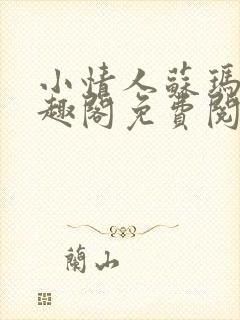 小情人蘇瑪
趣閣免費閱
蘭山